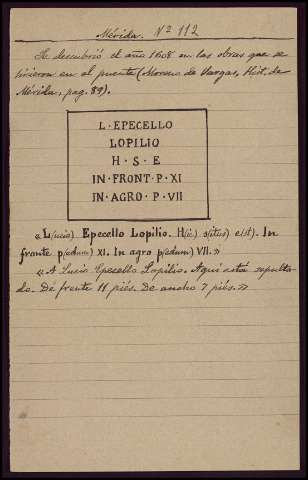 Mérida. Nº 112
Se descubrió el año 1608 en las obras que se
hicieron en el puente (Moreno de Vargas, Hist. de
Mérida, pag. 89).
L · EPECELLO
LOPILIO
H · S · E
IN · FRONT · P · XI
IN · AGRO · P · VII
« L(ucio). Epecello Lopilio. H(ic) s(itus) e(st). In
fronte p(edum) XI. In agro p(edum) VII. »
« A Lucio Epecello Lopilio. Aquí está sepulta-
do. De frente 11 piés. De ancho 7 piés. »